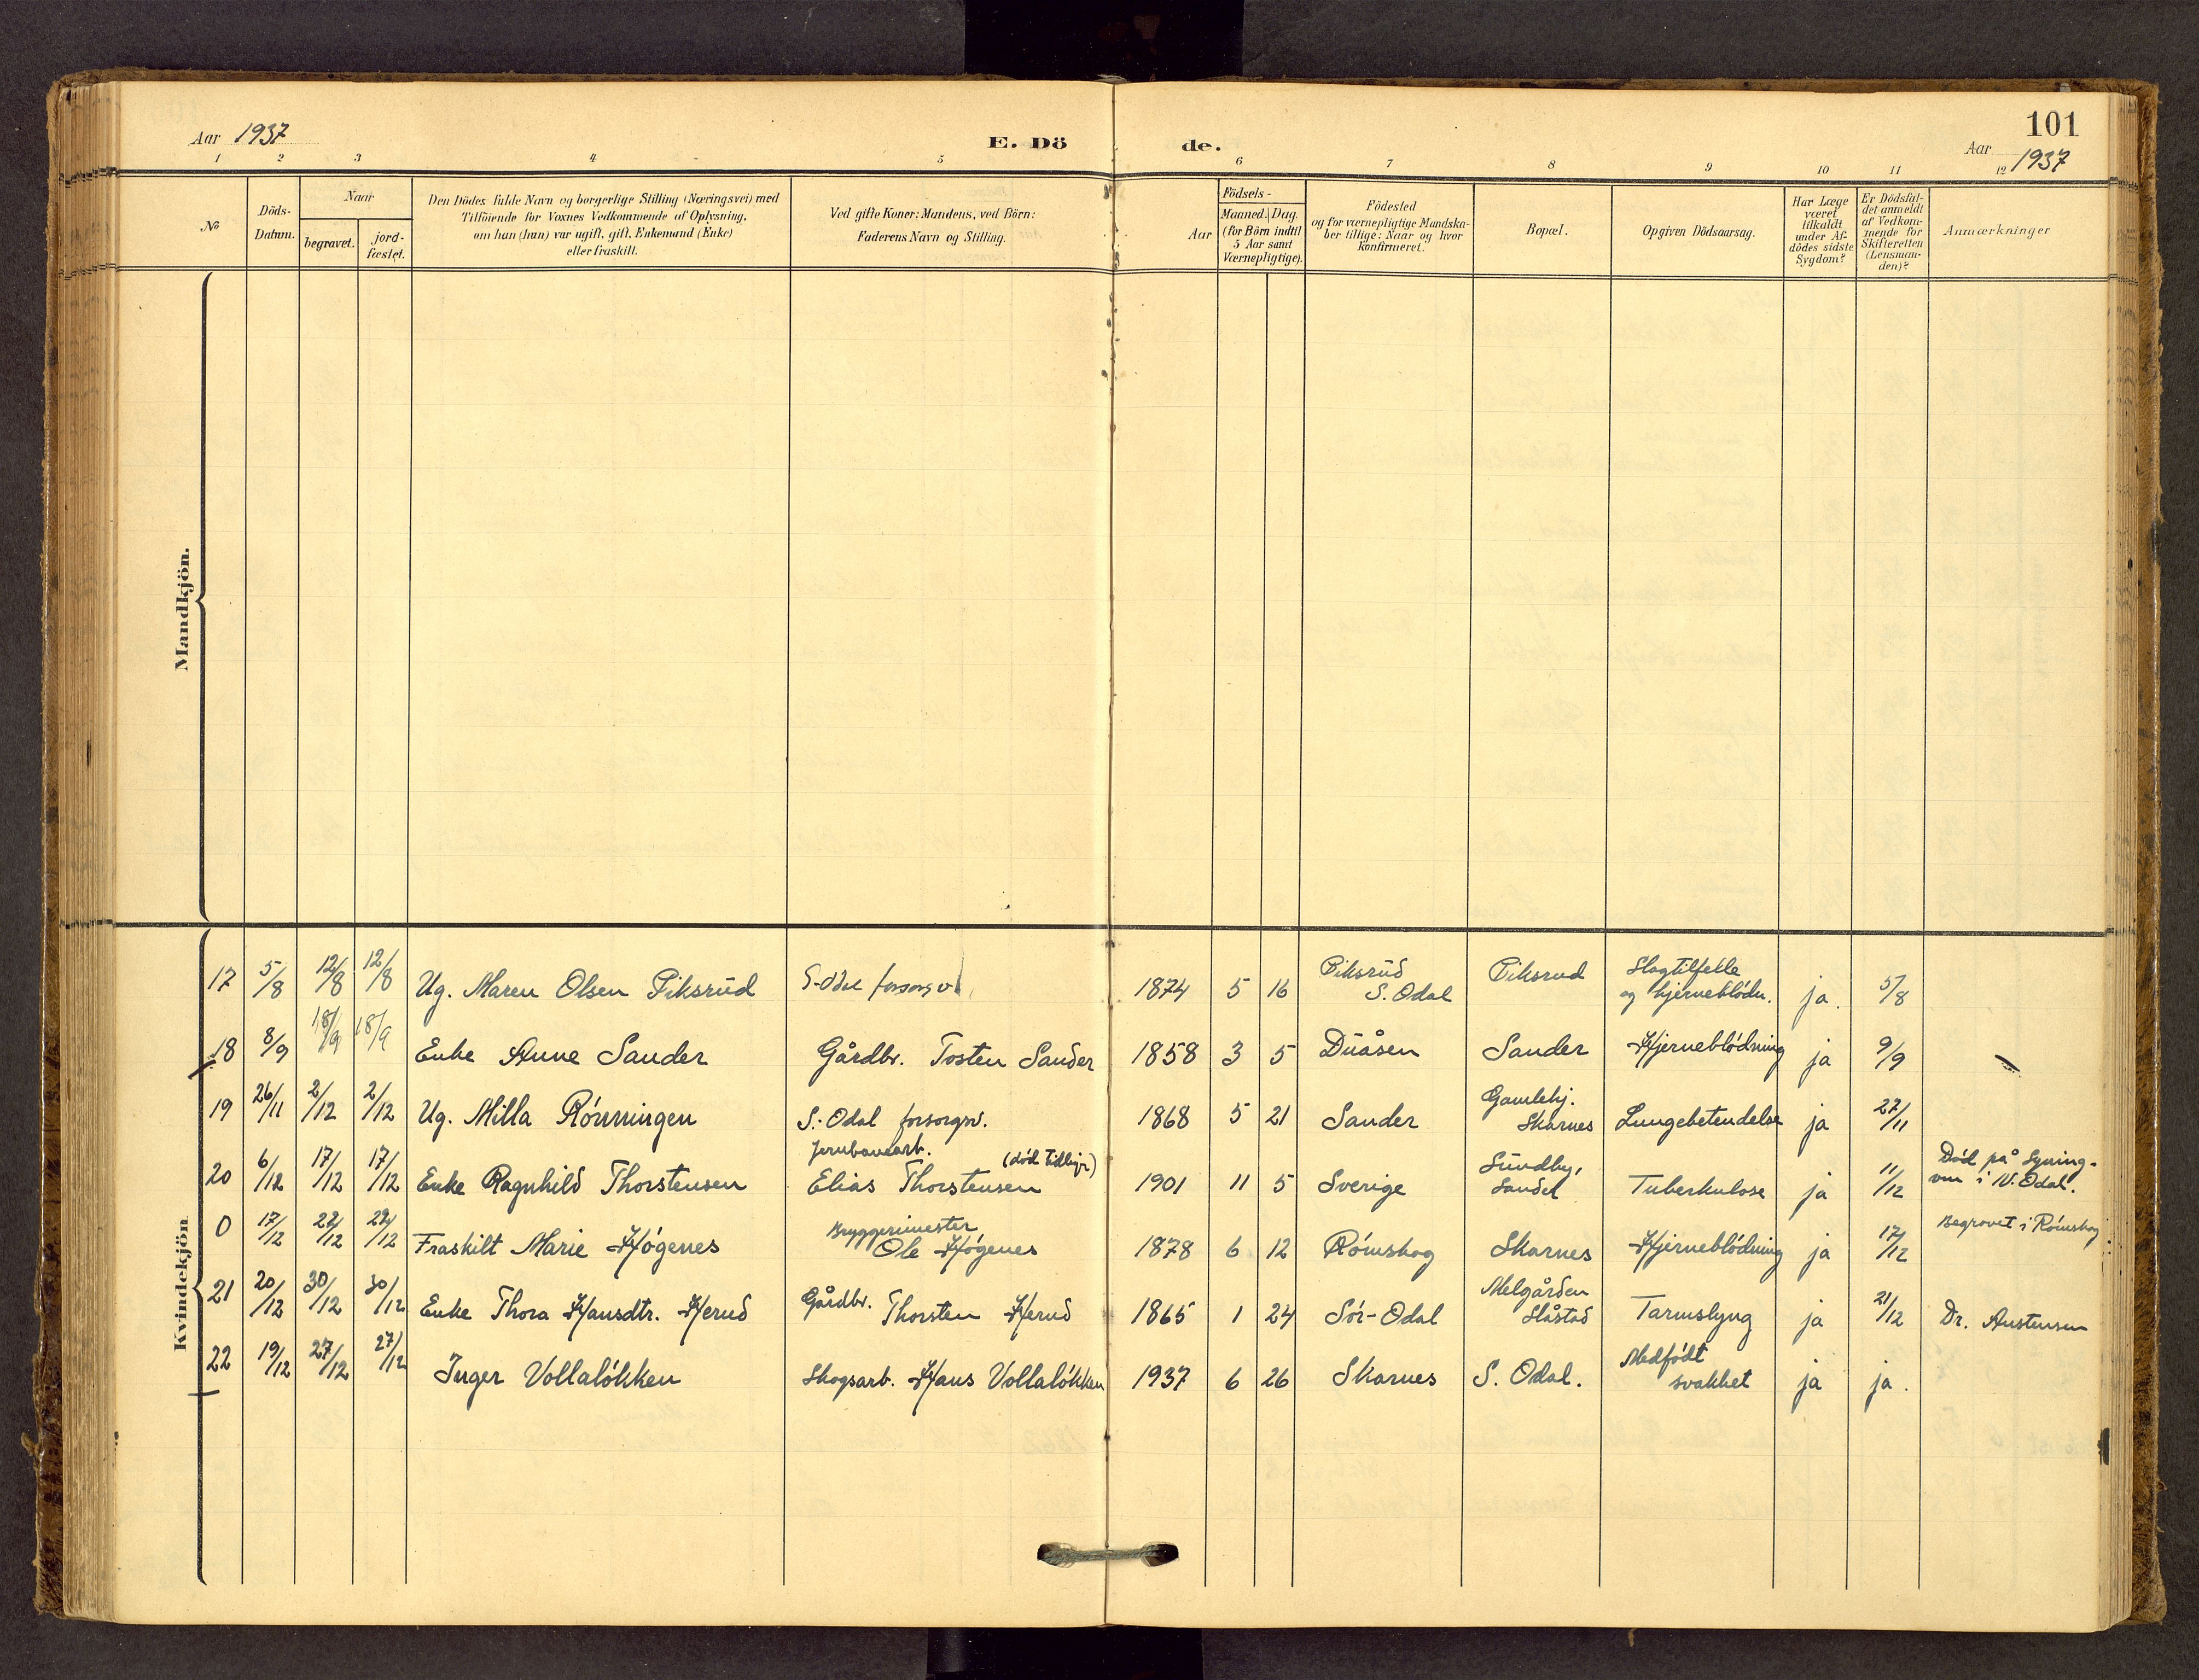 101
Aar 1937
E. Dö de.
Aar 1937
1 2 3 4 5 6 7 8 9 10 11 12
№
Döds-
Datum.
Naar
begravet.
jord-
fæstet.
Den Dödes fulde Navn og borgerlige Stilling (Næringsvei) med
Tilföiende for Voxnes Vedkommende af Oplysning,
om han (hun) var ugift, gift, Enkemand (Enke)
eller fraskilt.
Ved gifte Koner: Mandens, ved Börn:
Faderens Navn og Stilling.
Aar
Födsels-
Maaned. Dag.
(for Börn indtil
5 Aar samt
Værnepligtige).
Födested
og for værnepligtige Mandska-
ber tillige: Naar og hvor
konfirmeret.
Bopæl.
Opgiven Dödsaarsag.
Har Læge
været
tilkaldt
under Af-
dödes sidste
Sygdom?
Er Dödsfal-
det anmeldt
af Vedkom-
mende for
Skifteretten
(Lensman-
den)?
Anmærkninger
Mandkjön.
Kvindekjön
17 5/8 12/8 12/8 Ug. Maren Olsen Piksrud S-Odal forsorgsv. 1874 5 16 Piksrud
S. Odal Piksrud Slagtilfelle
og hjerneblödn. ja. 5/8
18 8/9 18/9 18/9 Enke Anne Sander Gårdbr. Tosten Sander 1858 3 5 Duåsen Sander Hjerneblödning ja 9/9
19 26/11 2/12 2/12 Ug. Milla Rönningen S.-Odal forsorgsv. 1868 5 21 Sander Gamlehj.
Skarnes Lungebetendelse ja 27/11
20 6/12 17/12 17/12 Enke Ragnhild Thorstensen Jernbanearb. (död tidligr.)
Elias Thorstensen 1901 11 5 Sverige Sundby,
Sander Tuberkulose ja 11/12 Död på Gjening-
en i N. Odal.
0 17/12 22/12 22/12 Fraskilt Marie Högenes Bryggerimester
Ole Högenes 1878 6 12 Römskog Skarnes Hjerneblödning ja 17/12 Begravet i Römskog
21 20/12 30/12 30/12 Enke Thora Hansdtr. Herud Gårdbr. Thorsten Herud 1865 1 24 Sör-Odal Melgården
Slåstad Tarmslyng ja 21/12 Dr. Austensen
22 19/12 27/12 27/12 Inger Vollalökken Skogsarb. Hans Vollalökken 1937 6 26 Skarnes S. Odal. Medfödt
svakhet ja ja.